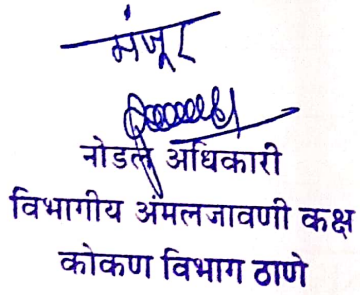 मंजूर
नोडल अधिकारी
विभागीय अंमलजावणी कक्ष
कोकण विभाग ठाणे